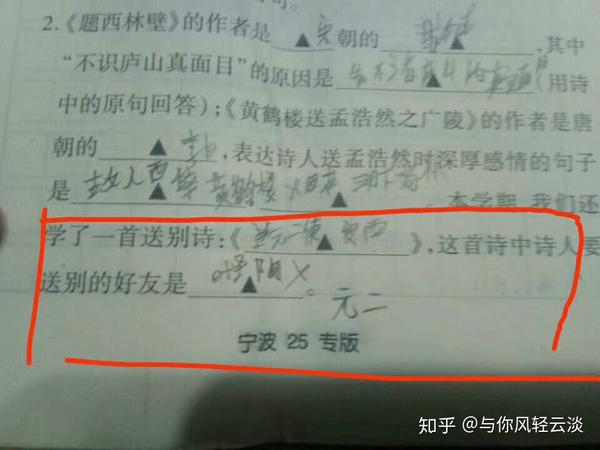 2.《题西林壁》的作者是▲宋朝的▲,其中
“不识庐山真面目”的原因是▲(用诗
中的原句回答);《黄鹤楼送孟浩然之广陵》的作者是唐
朝的▲,表达诗人送孟浩然时深厚感情的句子
是故人西辞黄鹤楼▲。本学期,我们还
学了一首送别诗:《送元二使▲安西》,这首诗中诗人要
送别的好友是▲。元二
宁波 25 专版
知乎 @与你风轻云淡